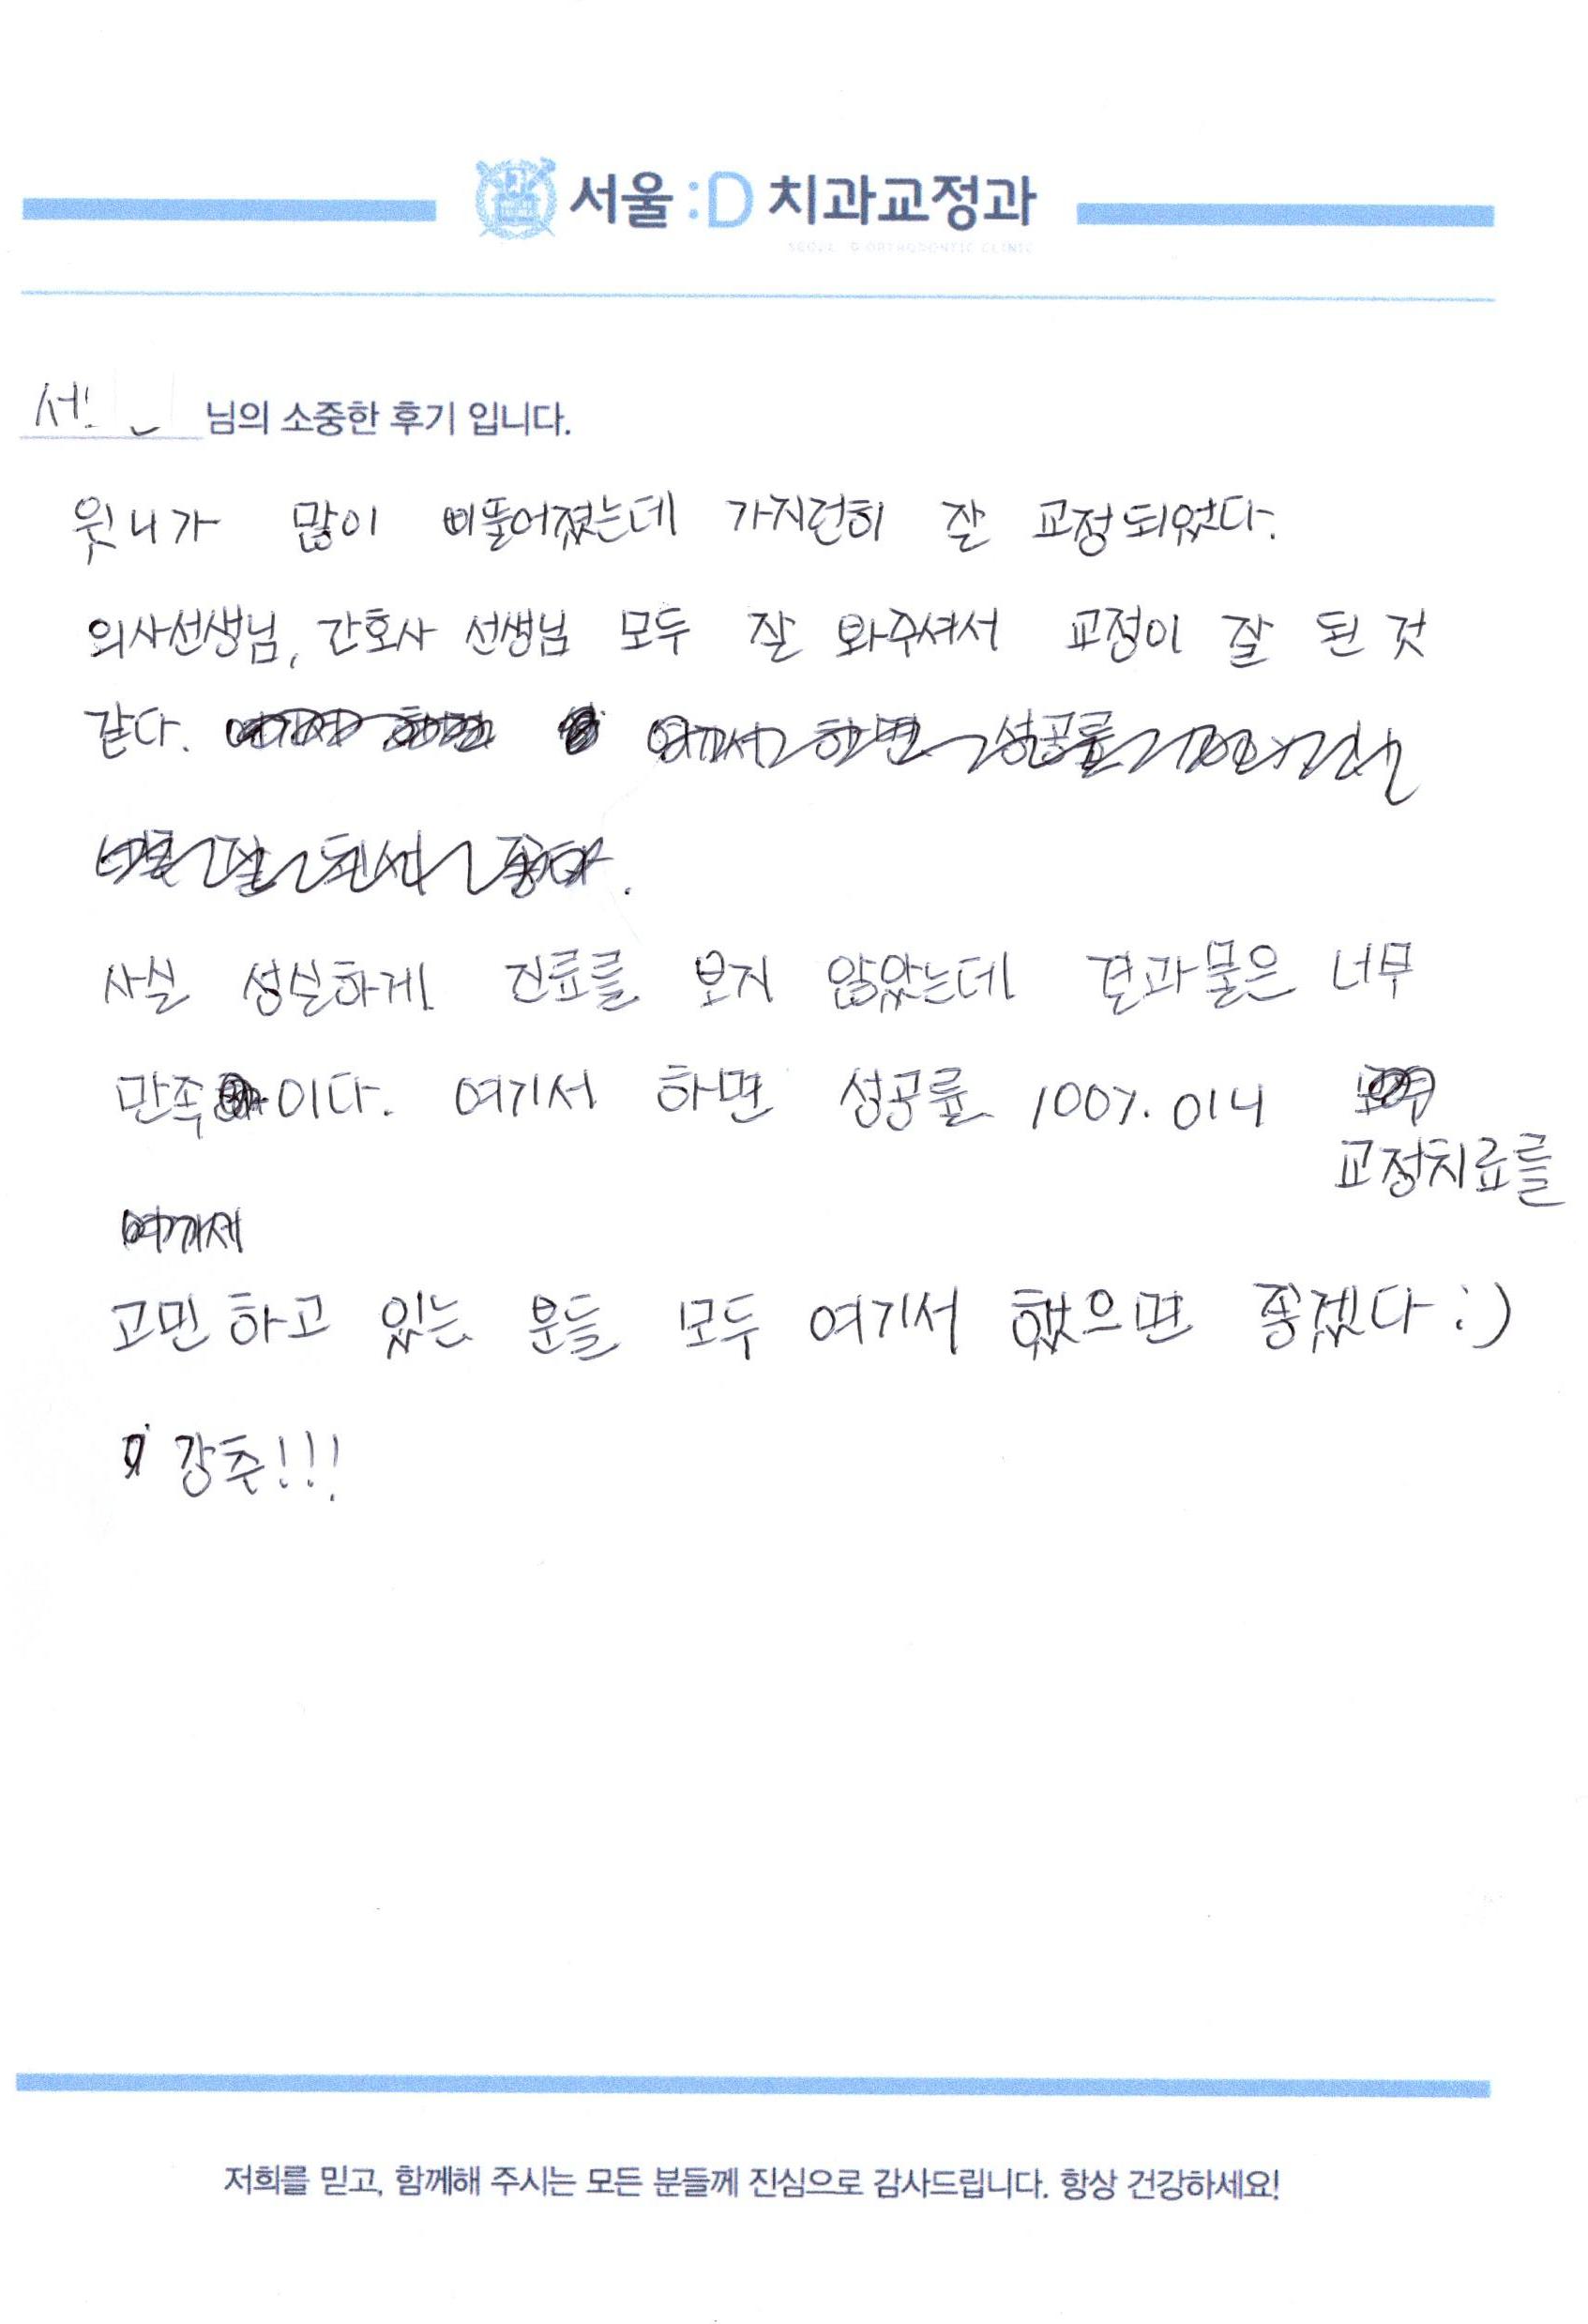 서울:D 치과교정과
SEOUL :D ORTHODONTIC CLINIC
님의 소중한 후기 입니다.
윗니가 많이 삐뚤어졌는데 가지런히 잘 교정되었다.
의사선생님, 간호사 선생님 모두 잘 봐주셔서 교정이 잘 된 것
같다. 여기서 하면 성공률
사실 성실하게 진료를 보지 않았는데 결과물은 너무
만족이다. 여기서 하면 성공률 100%이니
교정치료를
여기서
고민하고 있는 분들 모두 여기서 했으면 좋겠다 :)
강추!!!
저희를 믿고, 함께해 주시는 모든 분들께 진심으로 감사드립니다. 항상 건강하세요!